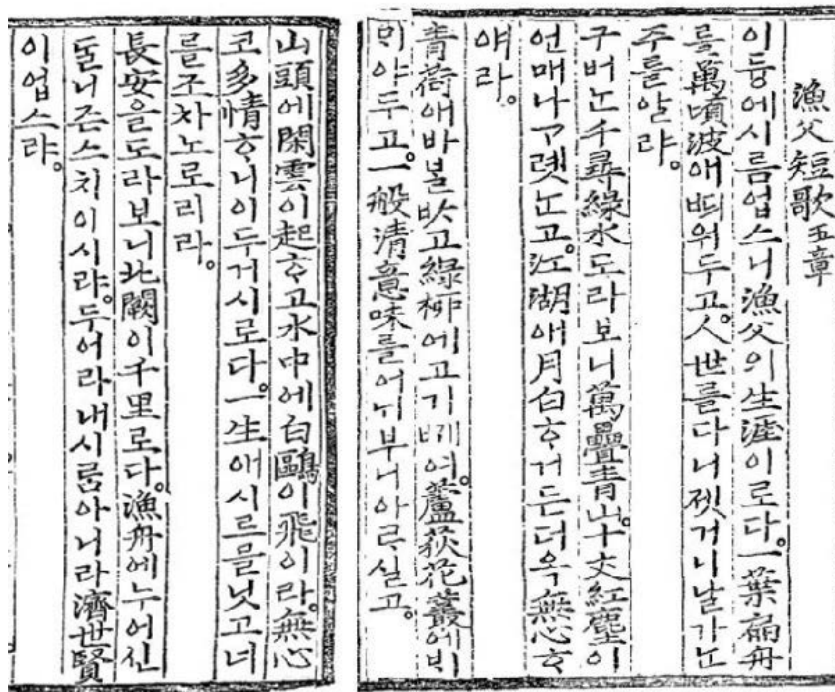 漁父短歌五章
이듕에시름업스니漁父의生涯이로다。一葉扁舟
를萬頃波애ᄯᅴ워두고。人世를다니젯거니날가ᄂᆞᆫ
주를알랴。
구버ᄂᆞᆫ千尋綠水도라보니萬疊青山。十丈紅塵이
언매나ᄀᆞ렛ᄂᆞᆫ고。江湖애月白ᄒᆞ거든더옥無心ᄒᆞ
얘라。
青荷애바ᄇᆞᆯᄡᆞ고綠柳에고기ᄢᅦ여。蘆荻花叢에ᄇᆡ
ᄆᆡ야두고。一般清意味를어ᄂᆡ부니아ᄅᆞ실고。
山頭에閑雲이起ᄒᆞ고水中에白鷗이飛이라。無心
코多情ᄒᆞ니이두거시로다。一生애시르믈닛고너
를조차노로리라。
長安을도라보니北闕이千里로다。漁舟에누어신
ᄃᆞᆯ니즌스치이시랴。두어라내시름아니라濟世賢
이업스랴。